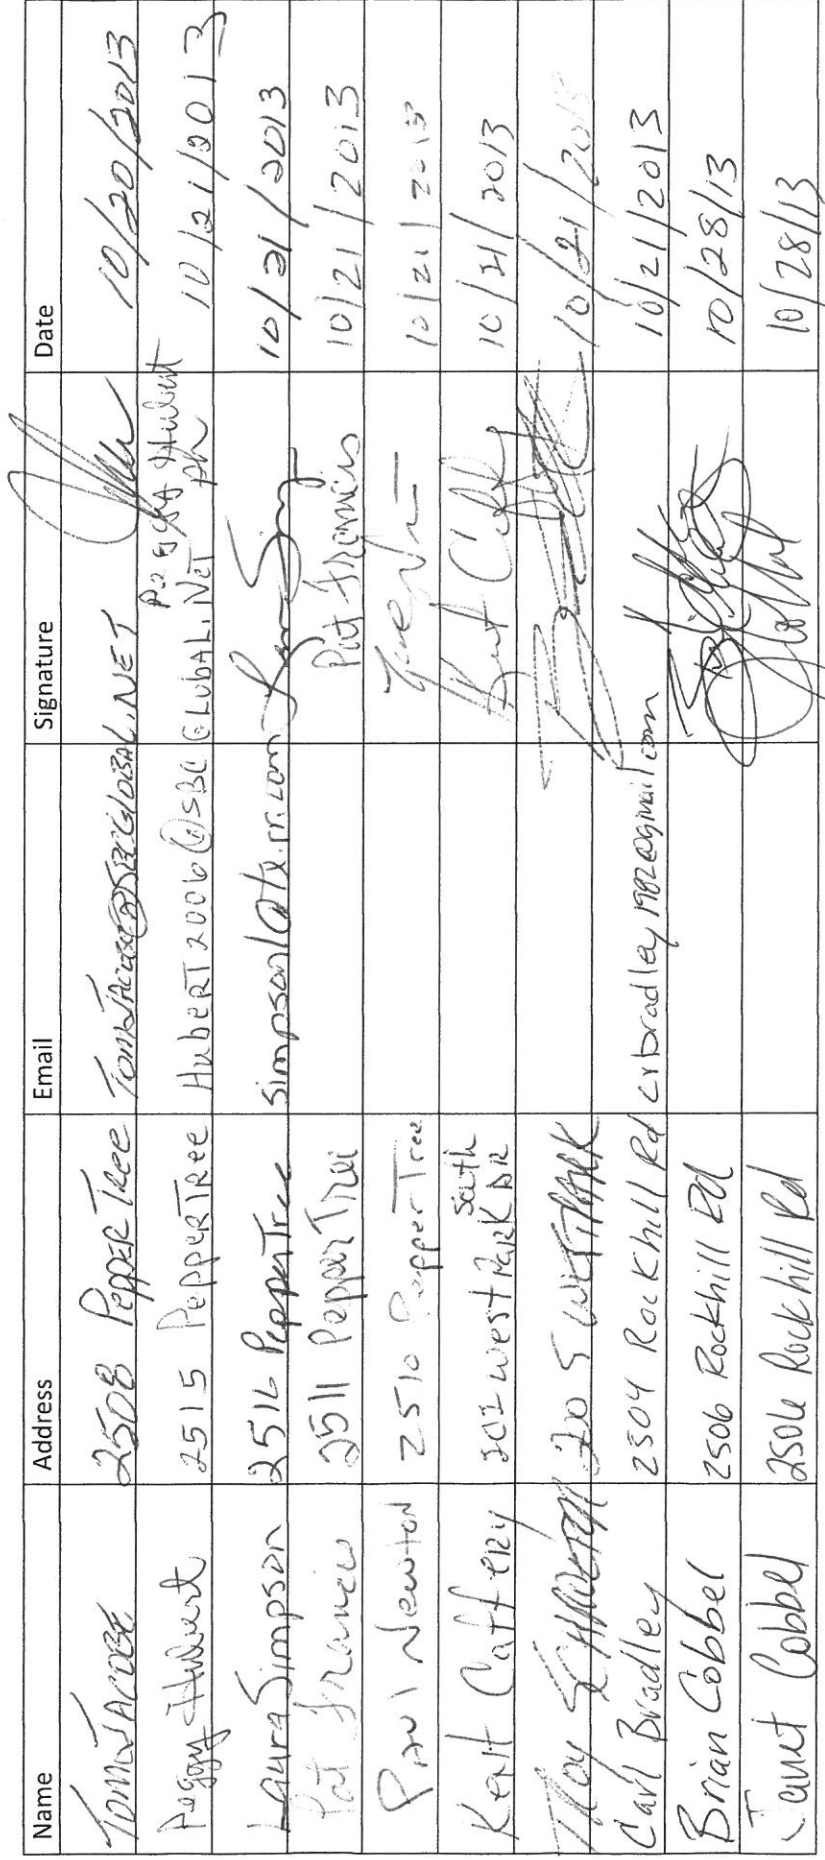 Name Address Email Signature Date
2508 Pepper Tree 10/20/2013
Peggy Hubert 2515 PepperTree Hubert2006@SBCGLOBAL.NET Peggy Hubert ph 10/21/2013
Laura Simpson 2516 PepperTree simpson1@tx.rr.com 10/21/2013
Pat Francis 2511 Pepper Tree Pat Francis 10/21/2013
Paul Newton 2510 Pepper Tree 10/21/2013
Kent Caffery 202 West Park DR South 10/21/2013
Troy 20 S WESTPARK 10/21/2013
Carl Bradley 2504 Rockhill Rd crbradley1982@gmail.com 10/21/2013
Brian Cobbel 2506 Rockhill Rd 10/28/13
Janet Cobbel 2506 Rockhill Rd 10/28/13